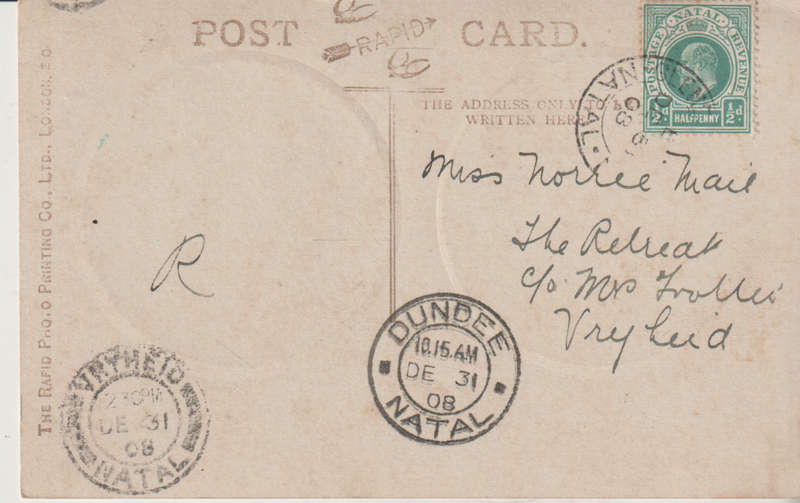 POST CARD.
RAPID
THE ADDRESS ONLY TO BE
WRITTEN HERE
NATAL
POSTAGE REVENUE
½d HALFPENNY ½d
NATAL
08
Miss Norree Mail
The Retreat
c/o Mrs
Vryheid
R
DUNDEE
10.15.AM
DE 31
08
NATAL
VRYHEID
2 30PM
DE 31
08
NATAL
THE RAPID PHOTO PRINTING CO., LTD., LONDON, E.C.